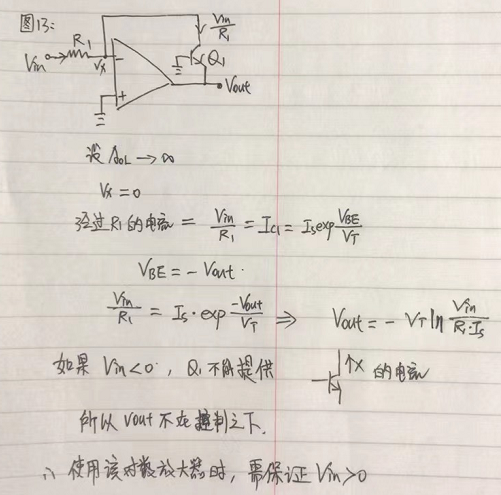 图13:
Vin R1 Vx - + Vin/R1 Q1 Vout
设 AOL → ∞
Vx = 0
经过R1的电流 = Vin/R1 = IC1 = Is exp VBE/VT
VBE = - Vout.
Vin/R1 = Is · exp -Vout/VT ⇒ Vout = - VT ln Vin/R1·Is
如果 Vin<0, Q1 不能提供 ↑X 的电流
所以 Vout 不在控制之下.
∴ 使用该对数放大器时, 需保证 Vin>0